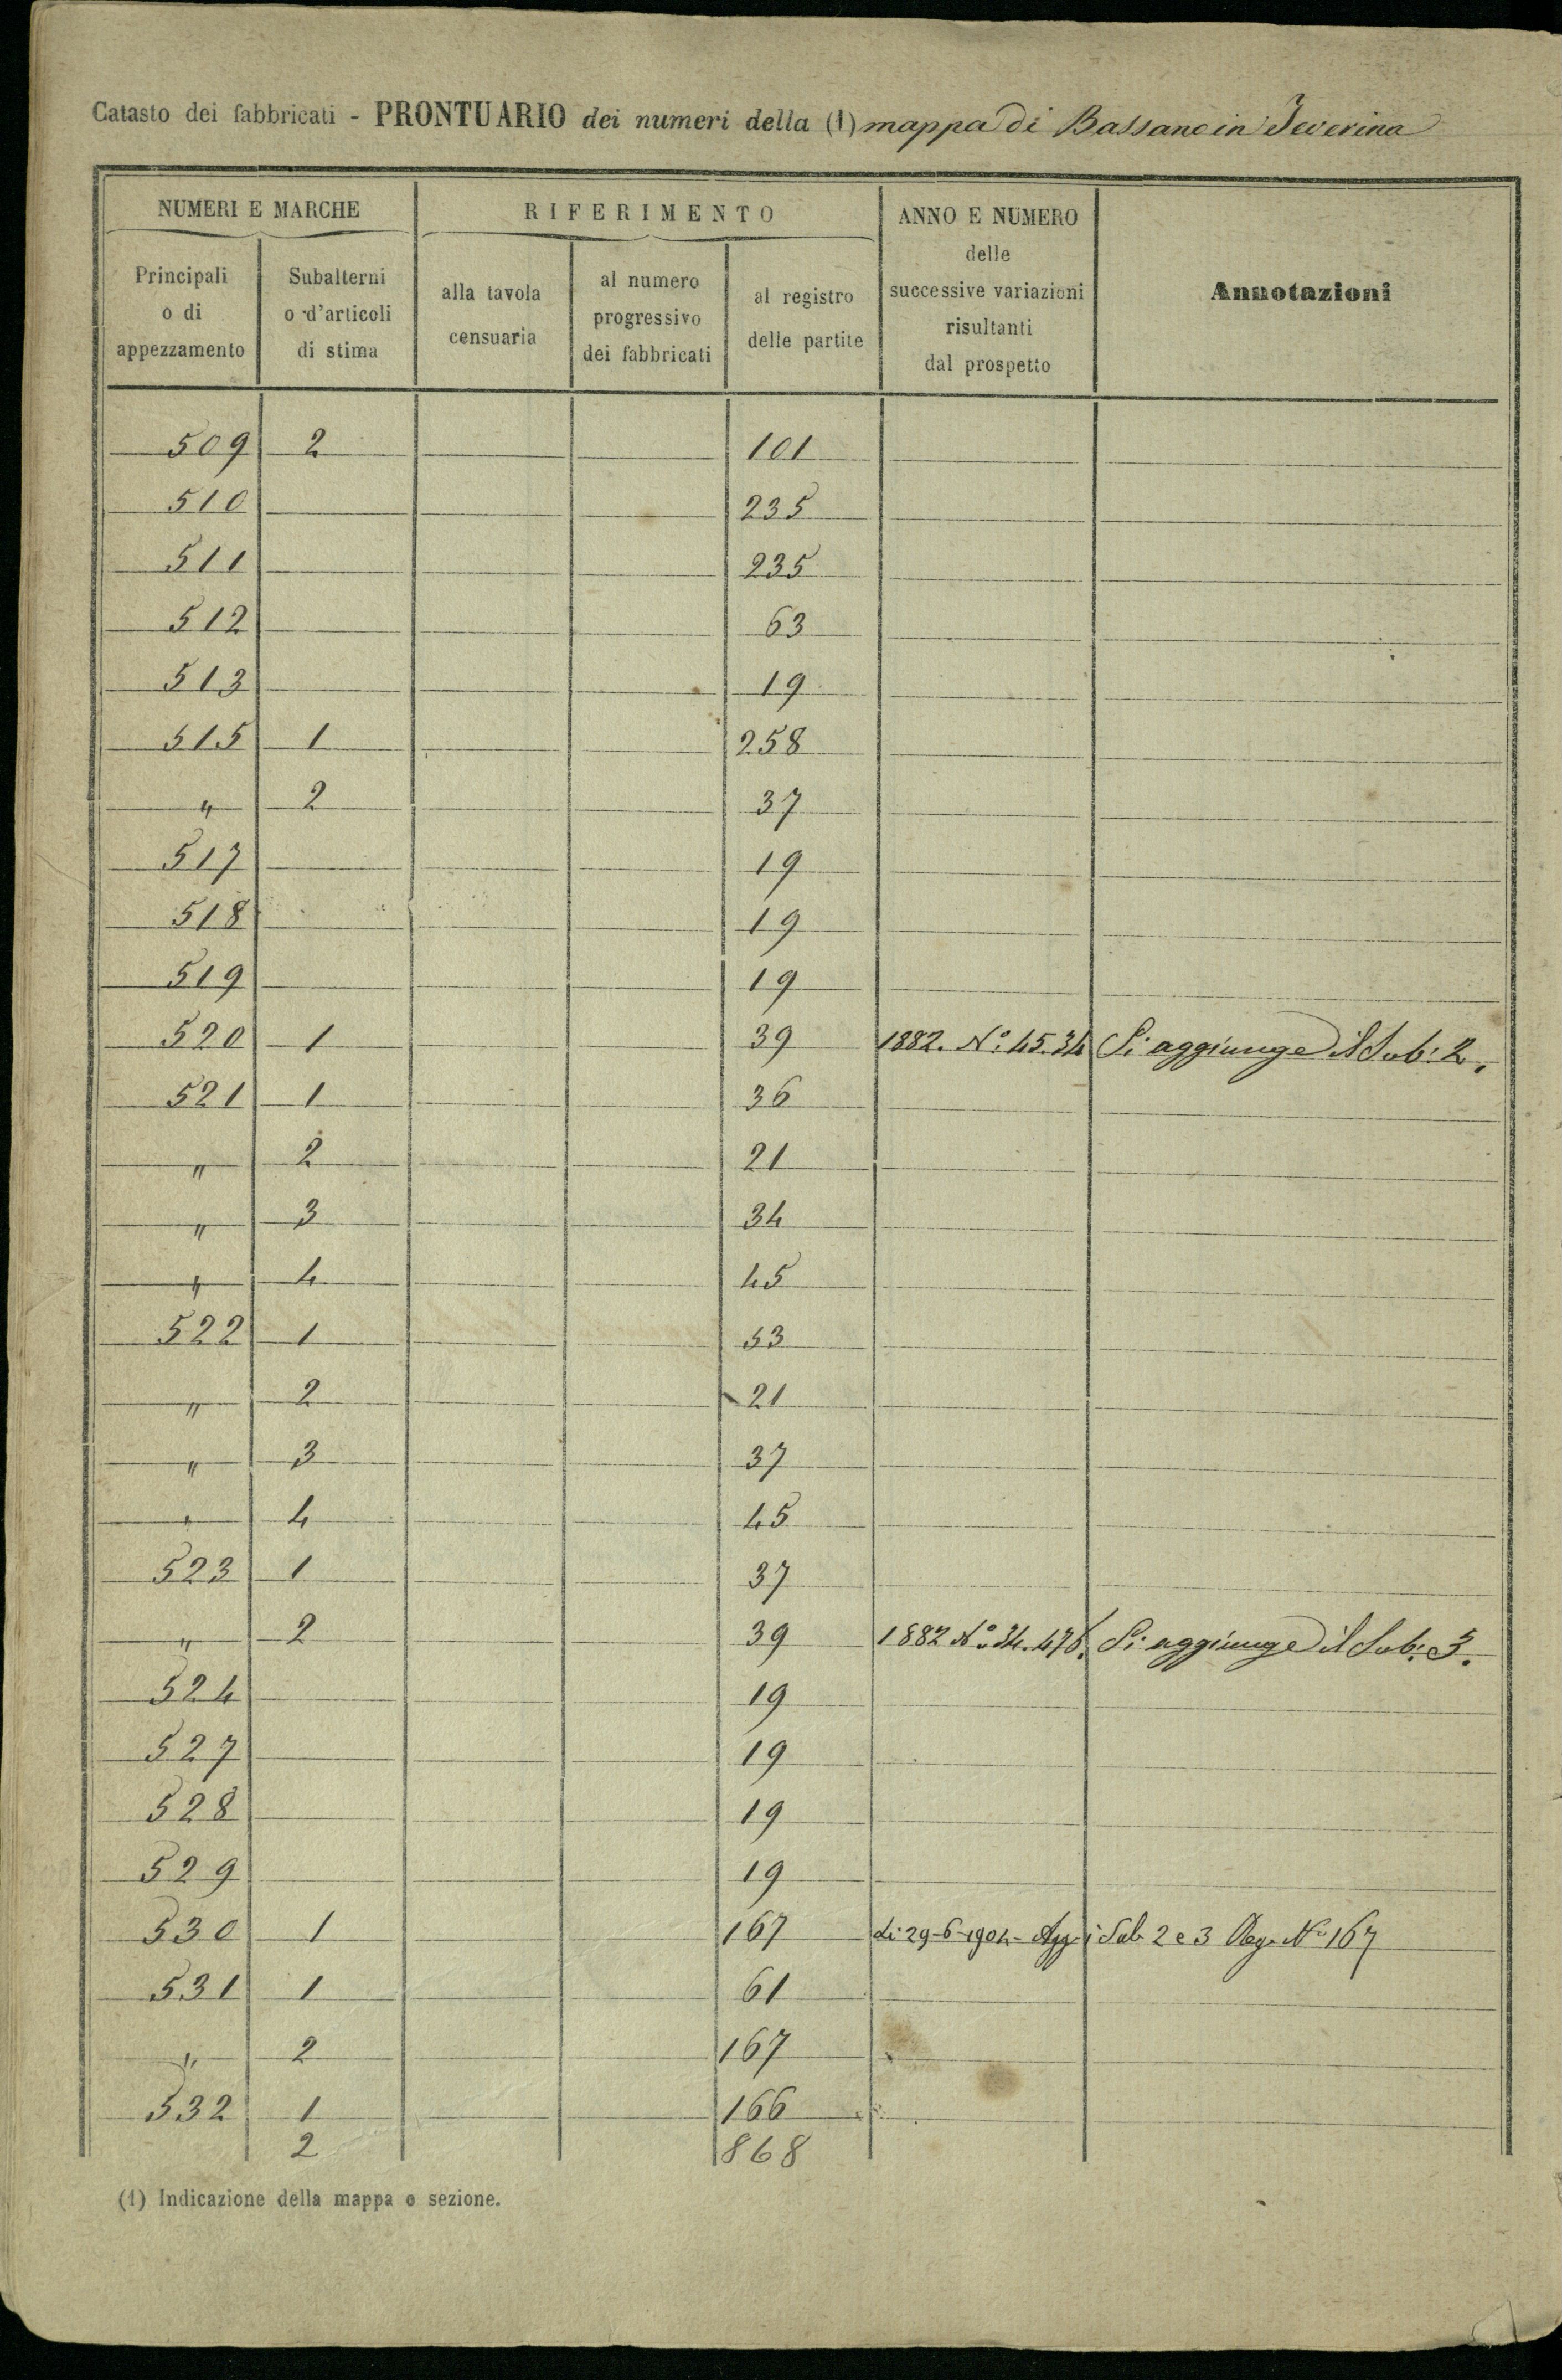 Catasto dei fabbricati - PRONTUARIO dei numeri della (1) mappa di Bassano in Teverina
NUMERI E MARCHE RIFERIMENTO ANNO E NUMERO delle successive variazioni risultanti dal prospetto Annotazioni
Principali o di appezzamento Subalterni o d'articoli di stima alla tavola censuaria al numero progressivo dei fabbricati al registro delle partite
509 2 101
510 235
511 235
512 63
513 19
515 1 258
" 2 37
517 19
518 19
519 19
520 1 39 1882. N.º 45.34 Si aggiunge il Sub: 2.
521 1 36
" 2 21
" 3 34
" 4 45
522 1 53
" 2 21
" 3 37
" 4 45
523 1 37
" 2 39 1882 Nº 34.476. Si aggiunge il Sub: 3.
524 19
527 19
528 19
529 19
530 1 167 Li 29-6-1904 - Agg. i Sub 2 e 3 Reg. Nº 167
531 1 61
" 2 167
532 1 166
2 868
(1) Indicazione della mappa o sezione.